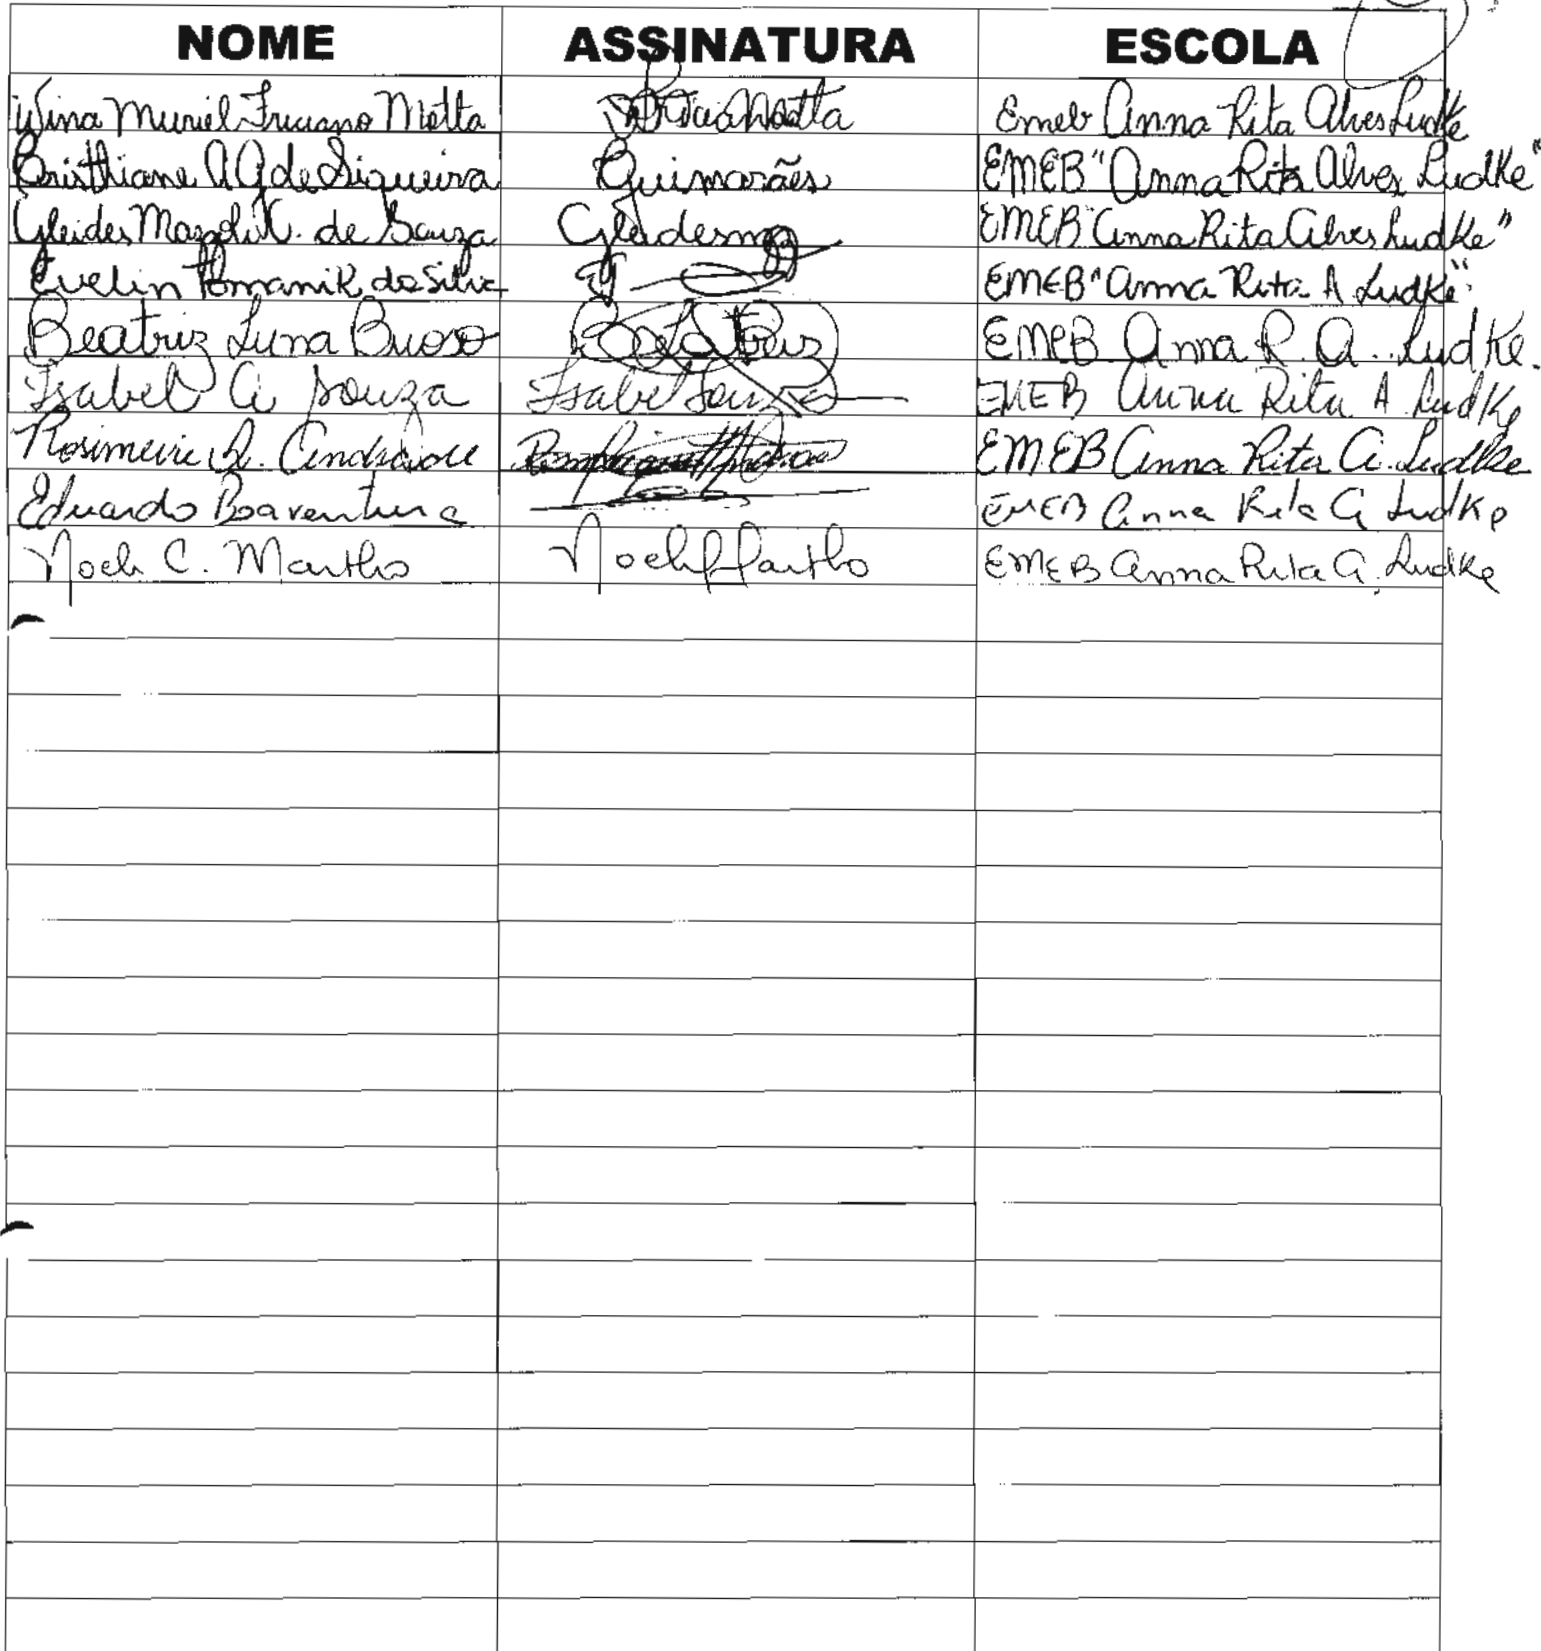 NOME ASSINATURA ESCOLA
Wina Muriel Fruciano Motta Motta Emeb Anna Rita Alves Ludke
Cristhiane A G de Siqueira Guimarães EMEB "Anna Rita Alves Ludke"
Gleides de Souza Gleidesm EMEB "Anna Rita Alves Ludke"
Evelin Romanik da Silva EMEB "Anna Rita A Ludke"
Beatriz Luna Buoso Beatriz EMEB Anna R. A. Ludke.
Isabel A Souza Isabel Souza EMEB Anna Rita A Ludke
Rosimeire R. Andrade EMEB Anna Rita A. Ludke
Eduardo Boaventura EMEB Anna Rita A Ludke
Noeli C. Martho Noeli Martho EMEB Anna Rita A. Ludke